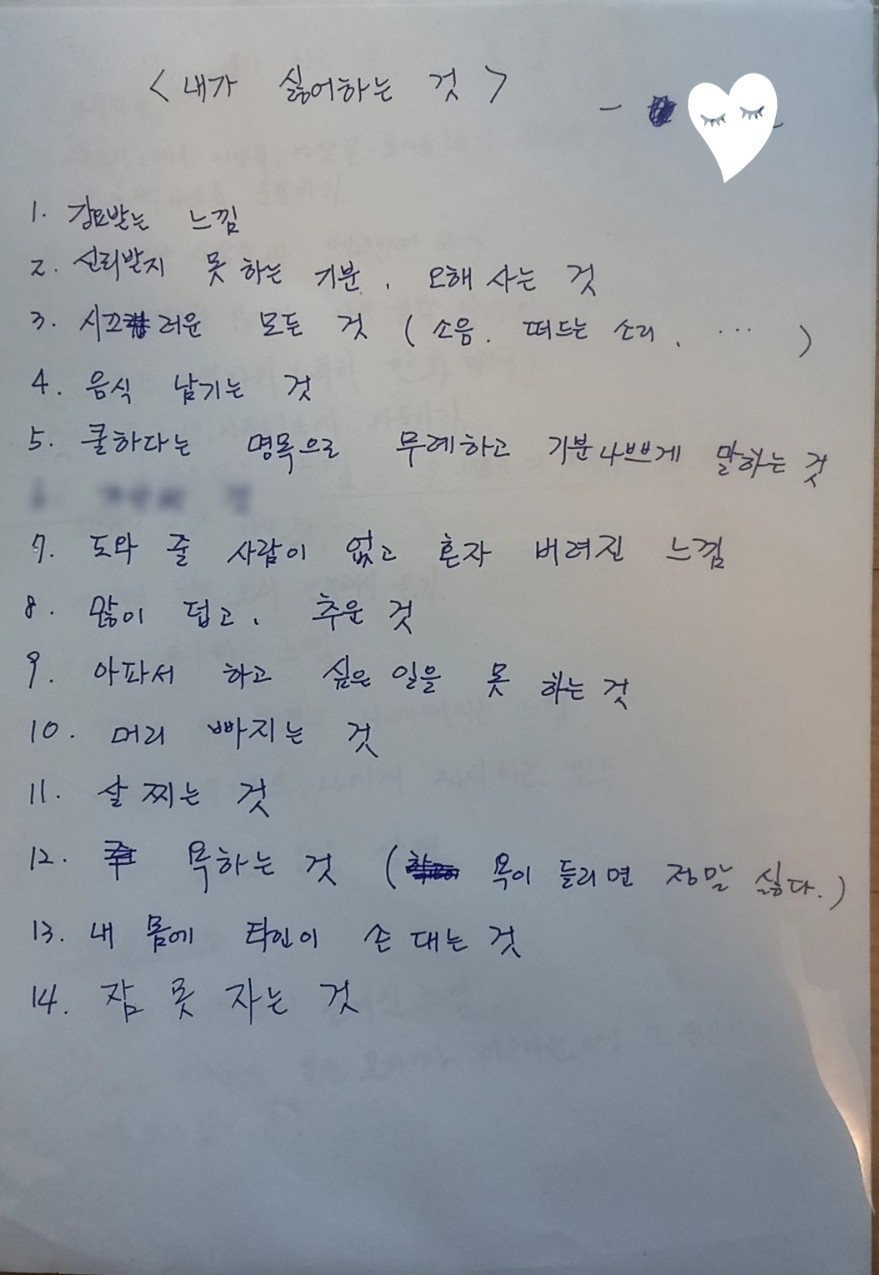 < 내가 싫어하는 것 >
1. 강요받는 느낌
2. 신뢰받지 못 하는 기분, 오해 사는 것
3. 시끄러운 모든 것 (소음, 떠드는 소리, ... )
4. 음식 남기는 것
5. 쿨하다는 명목으로 무례하고 기분나쁘게 말하는 것
7. 도와 줄 사람이 없고 혼자 버려진 느낌
8. 많이 덥고, 추운 것
9. 아파서 하고 싶은 일을 못 하는 것
10. 머리 빠지는 것
11. 살 찌는 것
12. 욕하는 것 ( 욕이 들리면 정말 싫다.)
13. 내 몸에 타인이 손 대는 것
14. 잠 못 자는 것